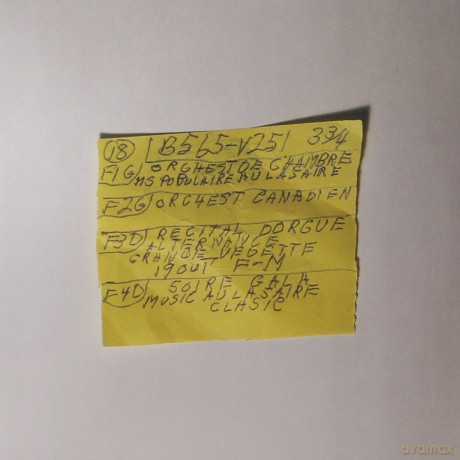 18 B565-V251 3 3/4
F1G ORCHEST DE CHAMBRE
MS POPULAIRE AU LASAIRE
F2G ORCHEST CANADIEN
F3D RECITAL DORGUE
ALTERNATIVE
GRANDE VEDETTE
19 OUT F-M
F4D SOIRE GALA
MUSIC AU LASAIRE
CLASIC
avamax